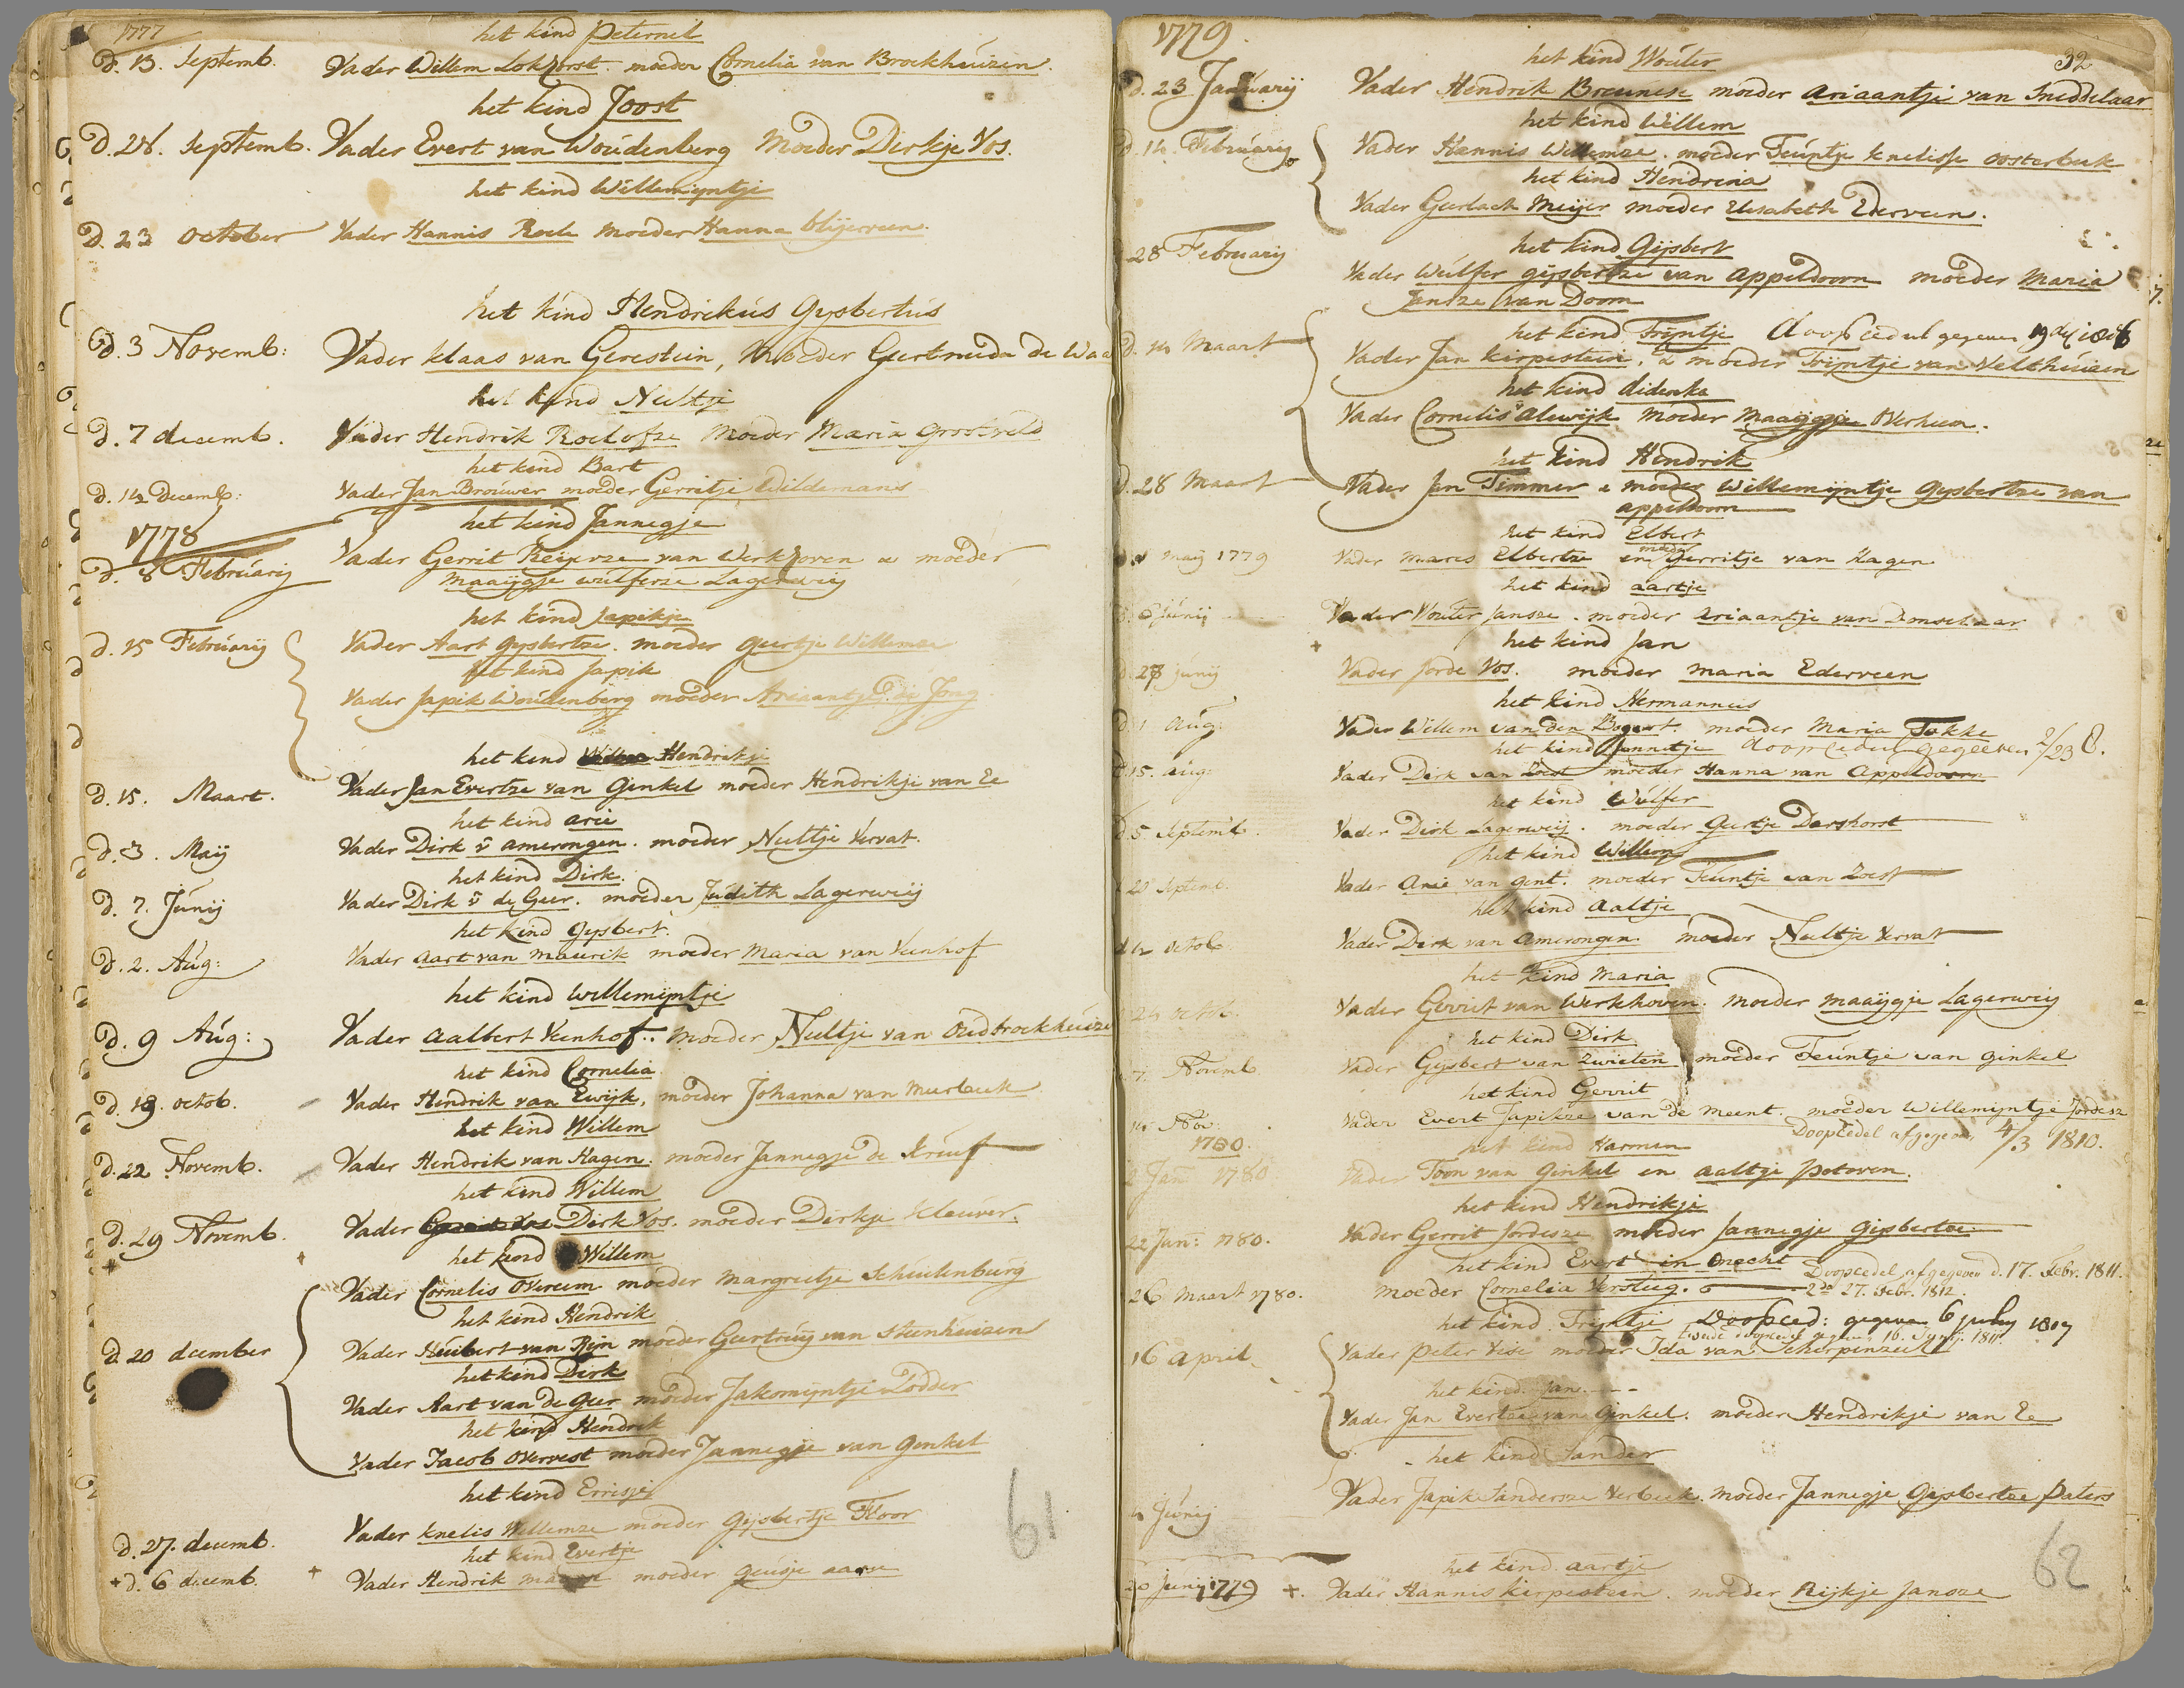 1777
het kind Peternel
D. 13. Septemb. Vader Willem Lokhorst. moeder Cornelia van Brockheúizen.
het kind Joost
D. 28. Septemb. Vader Evert van Woúdenberg Moeder Dirkje Vos.
het kind Willemijntje
D. 23 october Vader Hannis Roele moeder Hanna blijerveen.
het kind Hendrikús Gysbertús
D. 3 Novemb: Vader klaas van Gerestein, Moeder Geertruida de Waa
het kind Neeltje
D. 7 decemb. Vader Hendrik Roelofze Moeder Maria Grootveld
het kind Bart
D. 14 Decemb: Vader Jan Broúwer moeder Gerritje Wildemans
1778
het kind Jannegje
D. 8 Februarij Vader Gerrit Reijerze van Werkhoven & moeder
Maaijgje wúlferze Lagerweij
het kind Japikje
d. 15 Februarij Vader Aart gysbertze. moeder geertje Willemze
het kind Japik
Vader Japik Woúdenberg moeder Ariaantje de Jong
het kend Hendrikje
D. 15. Maart. Vader Jan Evertze van Ginkel moeder Hendrikje van Ee
het kind arie
d. 3. Maij Vader Dirk v amerongen. moeder Neeltje Vervat.
het kind Dirk.
D. 7. Júnij Vader Dirk v de Geer. moeder Júdith Lagerweij
het kind Gysbert.
D. 2. Aúg: Vader aart van maúrik moeder Maria van Veenhof
het kind willemijntje
D. 9 Aúg: Vader aalbert Veenhof.. Moeder Neeltje van Oudbrockheúize
het kind Cornelia.
D. 19. octob. Vader Hendrik van Ewijk, moeder Johanna van Meerbeek
het kind Willem
D. 22 Novemb. Vader Hendrik van Hagen. moeder Jannegje de Kruif
het kind Willem
D. 29 Novemb. Vader Dirk Vos. moeder Dirkje Kleúver.
het kend Willem
Vader Cornelis Overeem moeder Margreetje Scheulenburg
het kind Hendrik
D. 20 december Vader Húibert van Rijn moeder Geertruij van Steenheúizen
het kind Dirk
Vader Aart van de Geer moeder Jakomijntje Lodder
het kind Hendrik
Vader Jacob Overvest moeder Jannegje van Genkel
het kend Errisje
D. 27. decemb. Vader knelis Willemze moeder Gijsbertje Floor
het kind Evertje
+ D. 6 decemb. + Vader Hendrik moeder geusje aarse
61
1779
32
het kind Woúter
D. 23 Janúarij Vader Hendrik Breunese moeder Ariaantje van Sneddelaar
het kind Willem
D. 14. Febrúarij Vader Hannis Willemze. moeder Teúntje knelisse oosterbeek
het kind Hendrina
Vader Geerlach Meijer moeder Elisabeth Ederveen.
het kind Gijsbert
28 Februarij Vader Wúlfer gijsbertze van Appeldoorn moeder Maria
Janze van Doorn
het kind Trijntje doopcedul gegeven
D. 14 Maart Vader Jan kirpestein, & moeder Trijntje van Velthúizen
het kind didenka
Vader Cornelis Alewijk. Moeder Maaijgje Overheem.
het kind Hendrik
D. 28 Maart Vader Jan Timmer & moeder Willemijntje Gysbertze van
appeldoorn
het kind Elbert
Maij 1779 Vader Mares Elbertze en moeder Gerritje van Hagen
het kind aartje
6 júnij Vader Wouter Janze. moeder Ariaantje van Donselaar
+ het kind Jan
junij Vader Jorde Vos. moeder Maria Ederveen
het kind Hermannus
D. 1 Aúg: Vader Willem van den Bogert. moeder Maria Fokke
het kind Jannetje doopcedul gegeeven 2/23 8.
D. 15. aúg: Vader Dirk van Zoest moeder Hanna van Appeldoorn
het kind Wúlfer
D. 5 Septemb. Vader Dirk Lagerweij. moeder Geertje Dashorst
het kind Willem
20 Septemb. Vader Arie van Gent. moeder Teuntje van Zoest
het kind Aaltje
octob. Vader Dirk van Amerongen. moeder Neeltje Vervat
het kind Maria
24 octob. Vader Gerrit van Werkhoven. Moeder Maaijgje Lagerweij
het kind Dirk
7. Novemb Vader Gysbert van Zwieten moeder Teúntje van Ginkel
het kind Gerrit
14 Nov: Vader Evert Japikze van de Meent. moeder Willemijntje Jordesz
1780.
het kind Harmen Doopcedel afgegeven 4/3 1810.
2 Jan 1780 Vader Toon van Ginkel en Aaltje Potoven.
het kind Hendrikje
22 Jan: 1780. Vader Gerrit Jordesze moeder Jannegje Gijsbertze.
het kind Evert in onecht Doopcedel afgegeven d. 17. Febr. 1811.
26 Maart 1780. moeder Cornelia Versteeg. 2de 27. Febr. 1812.
het kind Trijntje Doopced: gegeven 6 july 1807
Tweede doopcedul gegeven 16. Junij. 1811.
16 April Vader Peter Vise moeder Ida van Scherpenzeel
het kind Jan
Vader Jan Evertze van Ginkel. moeder Hendrikje van Ee
het kind Sander
Júnij Vader Japik Sandersze Verbeek. Moeder Jannegje Gijsbertze Paters
het kind aartje
20 Junij 1779 +. Vader Hannis kirpestein. moeder Rijkje Janse
62